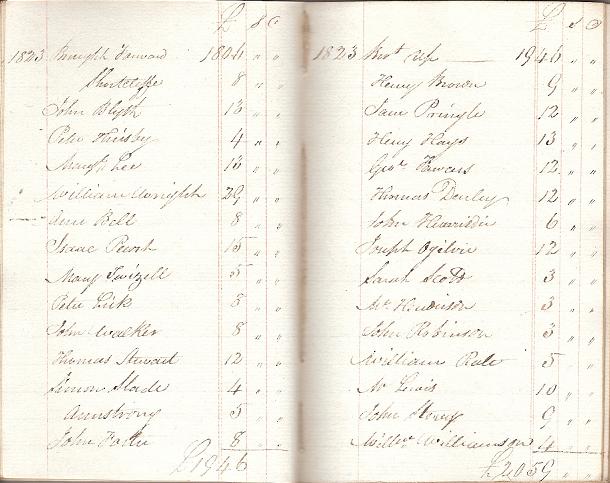 £ S D
1823 Brought Forward 1804 " "
Shortcliffe 8 " "
John Blyth 13 " "
Peter Thirsby 4 " "
Margt Lee 13 " "
William Wright 29 " "
Ann Bell 8 " "
Isaac 15 " "
Mary Twizell 5 " "
Peter 3 " "
John Walker 8 " "
Thomas Steward 12 " "
Simon Slade 4 " "
Armstrong 5 " "
John 8 " "
£1946
£ S D
1823 Brot Up 1946 " "
Henry Brown 9 " "
Sam Pringle 12 " "
Henry Hays 13 " "
Geoe 12 " "
Thomas Denley 12 " "
John 6 " "
Joseph Ogilvie 12 " "
Sarah Scott 3 " "
Mr Henderson 3 " "
John Robinson 3 " "
William 5 " "
Mr Lewis 10 " "
John Storey 9 " "
Willm Williamson 4 " "
£2059